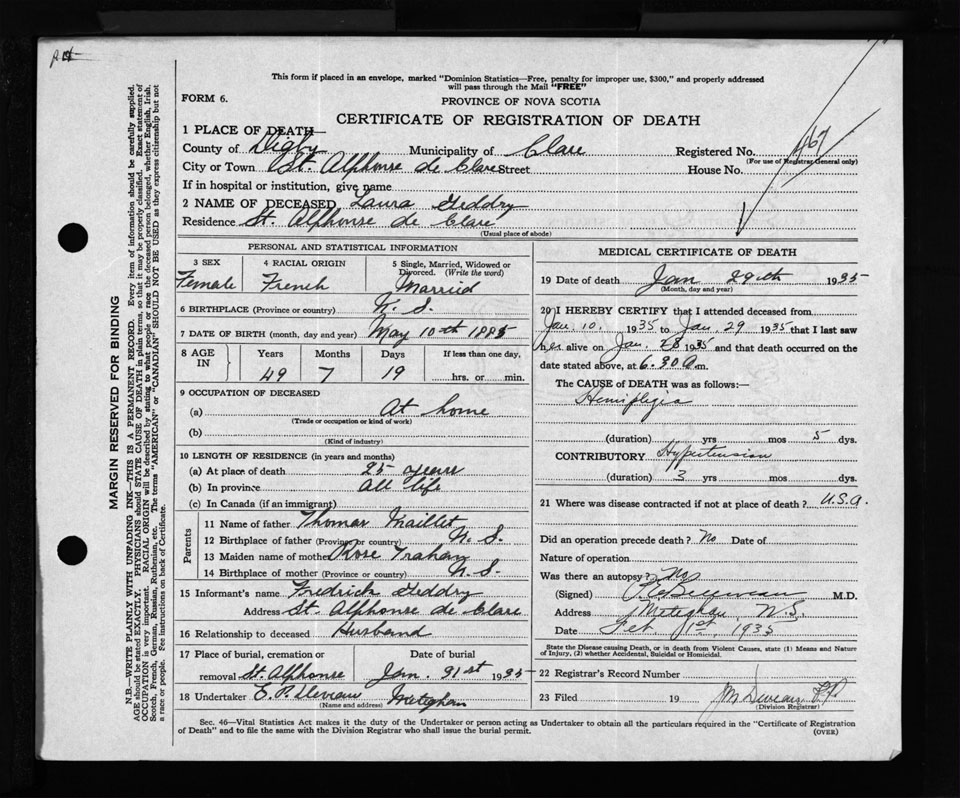 This form if placed in an envelope, marked "Dominion Statistics—Free, penalty for improper use, $300," and properly addressed
will pass through the Mail "FREE"
FORM 6.
PROVINCE OF NOVA SCOTIA
CERTIFICATE OF REGISTRATION OF DEATH
1 PLACE OF DEATH—
County of Digby Municipality of Clare Registered No. 467
(For use of Registrar General only)
City or Town St. Alphonse de Clare Street House No.
If in hospital or institution, give name
2 NAME OF DECEASED Laura Geddry
Residence St. Alphonse de Clare
(Usual place of abode)
PERSONAL AND STATISTICAL INFORMATION
3 SEX 4 RACIAL ORIGIN 5 Single, Married, Widowed or
Divorced. (Write the word)
Female French Married
6 BIRTHPLACE (Province or country) N. S.
7 DATE OF BIRTH (month, day and year) May 10th 1885
8 AGE IN Years Months Days If less than one day,
49 7 19 hrs. or min.
9 OCCUPATION OF DECEASED
(a) At home
(Trade or occupation or kind of work)
(b)
(Kind of industry)
10 LENGTH OF RESIDENCE (in years and months)
(a) At place of death 25 years
(b) In province all life
(c) In Canada (if an immigrant)
Parents
11 Name of father Thomas Maillet
12 Birthplace of father (Province or country) N. S.
13 Maiden name of mother Rose Trahan
14 Birthplace of mother (Province or country) N. S.
15 Informant's name Fredrick Geddry
Address St. Alphonse de Clare
16 Relationship to deceased Husband
17 Place of burial, cremation or Date of burial
removal St. Alphonse Jan. 31st 1935
18 Undertaker E. P. Deveau Meteghan
(Name and address)
MEDICAL CERTIFICATE OF DEATH
19 Date of death Jan 29th 1935
(Month, day and year)
20 I HEREBY CERTIFY that I attended deceased from
Jan. 10. 1935 to Jan. 29 1935 that I last saw
her alive on Jan. 28 1935 and that death occurred on the
date stated above, at 6.30 a.m.
The CAUSE OF DEATH was as follows:—
Hemiplegia
(duration) yrs mos 5 dys.
CONTRIBUTORY Hypertension
(duration) 3 yrs mos dys.
21 Where was disease contracted if not at place of death? U.S.A.
Did an operation precede death? No Date of
Nature of operation
Was there an autopsy? No
(Signed) M.D.
Address Meteghan N.S.
Date Feb. 1st, 1935
State the Disease causing Death, or in death from Violent Causes, state (1) Means and Nature
of Injury, (2) whether Accidental, Suicidal or Homicidal.
22 Registrar's Record Number
23 Filed 19 Deveau
(Division Registrar)
Sec. 46—Vital Statistics Act makes it the duty of the Undertaker or person acting as Undertaker to obtain all the particulars required in the "Certificate of Registration
of Death" and to file the same with the Division Registrar who shall issue the burial permit.
(OVER)
MARGIN RESERVED FOR BINDING
N.B.—WRITE PLAINLY WITH UNFADING INK—THIS IS A PERMANENT RECORD. Every item of information should be carefully supplied.
AGE should be stated EXACTLY. PHYSICIANS should STATE CAUSE OF DEATH in plain terms, so that it may be properly classified. Exact statement of
OCCUPATION is very important. RACIAL ORIGIN will be described by stating to what people or race the deceased person belonged, whether English, Irish,
Scotch, French, German, Russian, Ruthenian, etc. The terms "AMERICAN" or "CANADIAN" SHOULD NOT BE USED as they express citizenship but not
a race or people. See instructions on back of Certificate.